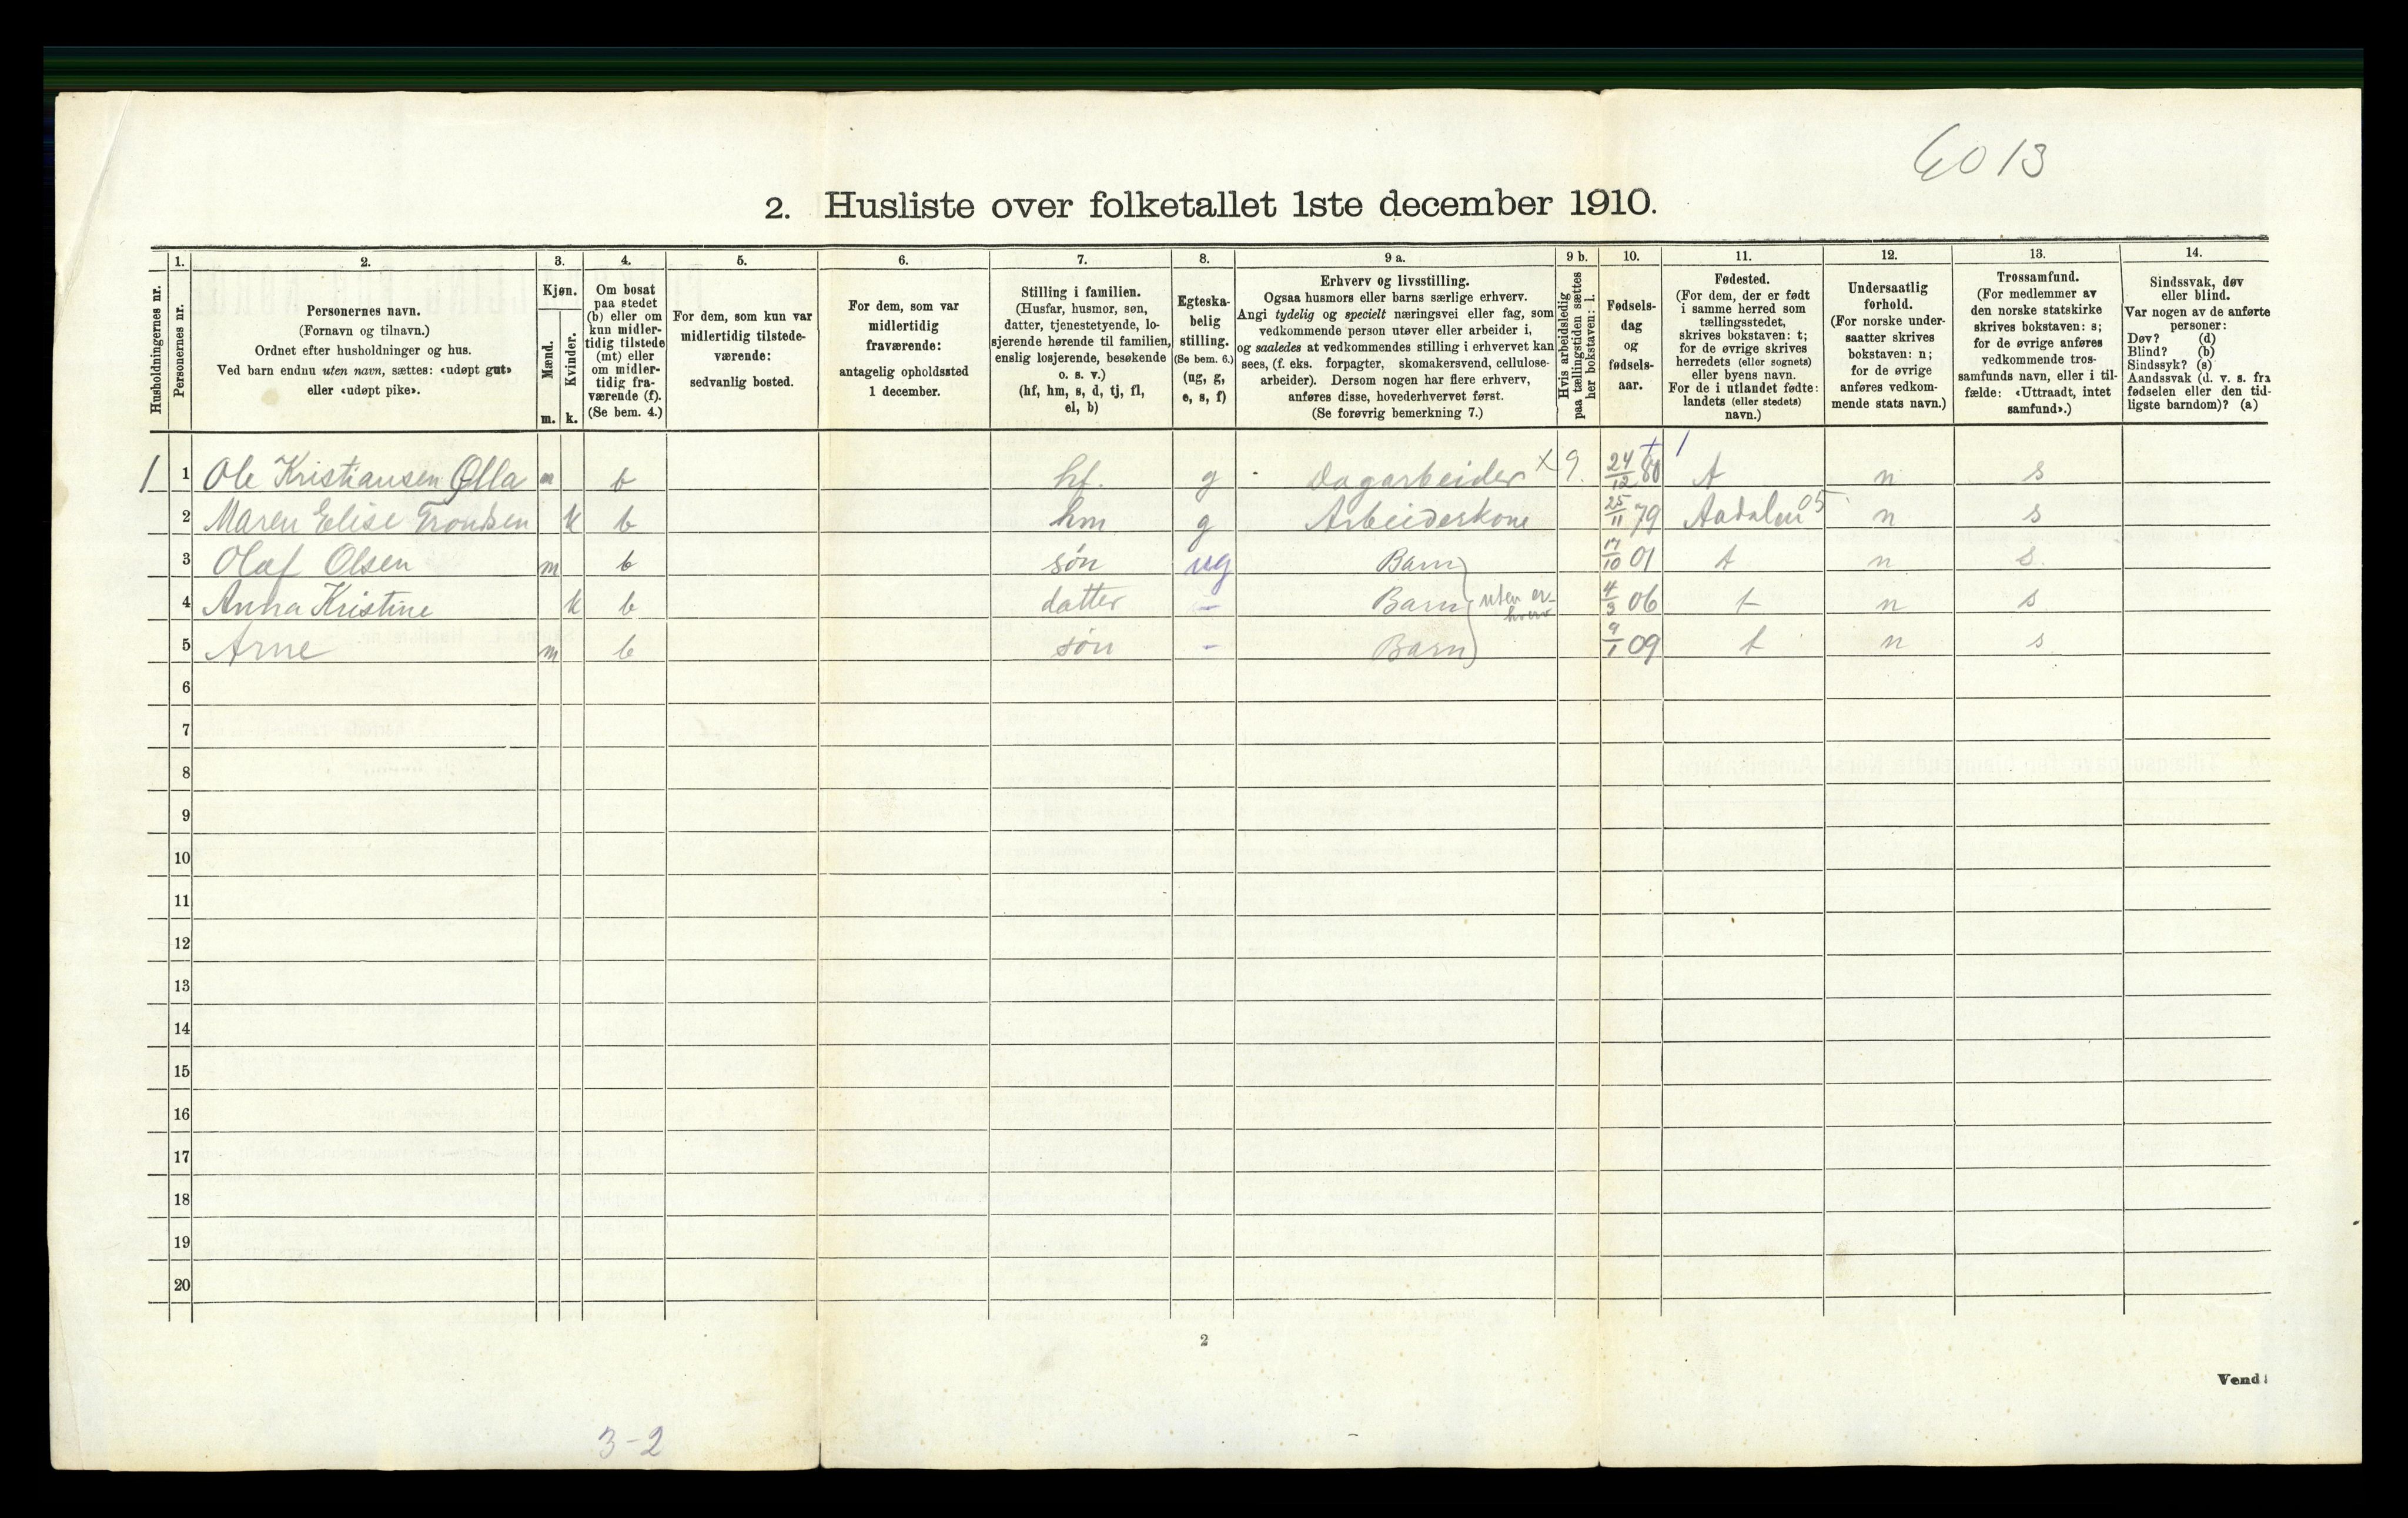 6013
2. Husliste over folketallet 1ste december 1910.
Husholdningernes nr.
1.
Personernes nr.
2.
Personernes navn.
(Fornavn og tilnavn.)
Ordnet efter husholdninger og hus.
Ved barn endnu uten navn, sættes: «udøpt gut»
eller «udøpt pike».
3.
Kjøn.
Mænd.
Kvinder.
m. k.
4.
Om bosat
paa stedet
(b) eller om
kun midler-
tidig tilstede
(mt) eller
om midler-
tidig fra-
værende (f).
(Se bem. 4.)
5.
For dem, som kun var
midlertidig tilstede-
værende:
sedvanlig bosted.
6.
For dem, som var
midlertidig
fraværende:
antagelig opholdssted
1 december.
7.
Stilling i familien.
(Husfar, husmor, søn,
datter, tjenestetyende, lo-
sjerende hørende til familien,
enslig losjerende, besøkende
o. s. v.)
(hf, hm, s, d, tj, fl,
el, b)
8.
Egteska-
belig
stilling.
(Se bem. 6.)
(ug, g,
e, s, f)
9 a.
Erhverv og livsstilling.
Ogsaa husmors eller barns særlige erhverv.
Angi tydelig og specielt næringsvei eller fag, som
vedkommende person utøver eller arbeider i,
og saaledes at vedkommendes stilling i erhvervet kan
sees, (f. eks. forpagter, skomakersvend, cellulose-
arbeider). Dersom nogen har flere erhverv,
anføres disse, hovederhvervet først.
(Se forøvrig bemerkning 7.)
9 b.
Hvis arbeidsledig
paa tællingstiden sættes
her bokstaven: l.
10.
Fødsels-
dag
og
fødsels-
aar.
11.
Fødested.
(For dem, der er født
i samme herred som
tællingsstedet,
skrives bokstaven: t;
for de øvrige skrives
herredets (eller sognets)
eller byens navn.
For de i utlandet fødte:
landets (eller stedets)
navn.)
12.
Undersaatlig
forhold.
(For norske under-
saatter skrives
bokstaven: n;
for de øvrige
anføres vedkom-
mende stats navn.)
13.
Trossamfund.
(For medlemmer av
den norske statskirke
skrives bokstaven: s;
for de øvrige anføres
vedkommende tros-
samfunds navn, eller i til-
fælde: «Uttraadt, intet
samfund».)
14.
Sindssvak, døv
eller blind.
Var nogen av de anførte
personer:
Døv? (d)
Blind? (b)
Sindssyk? (s)
Aandssvak (d. v. s. fra
fødselen eller den tid-
ligste barndom)? (a)
1 1 Ole Kristiansen Ølla m b hf. g Dagarbeider x 9. 24/12 80 t n s
2 Maren Elise Trondsen k b hm g Arbeiderkone 25/11 79 Aadalen 05 n s
3 Olaf Olsen m b søn ug Barn 17/10 01 t n s.
4 Anna Kristine k b datter - Barn uten er-
hverv 4/3 06 t n s
5 Arne m b søn - Barn 9/1 09 t n s.
6
7
8
9
10
11
12
13
14
15
16
17
18
19
20
2
Vend!
3-2